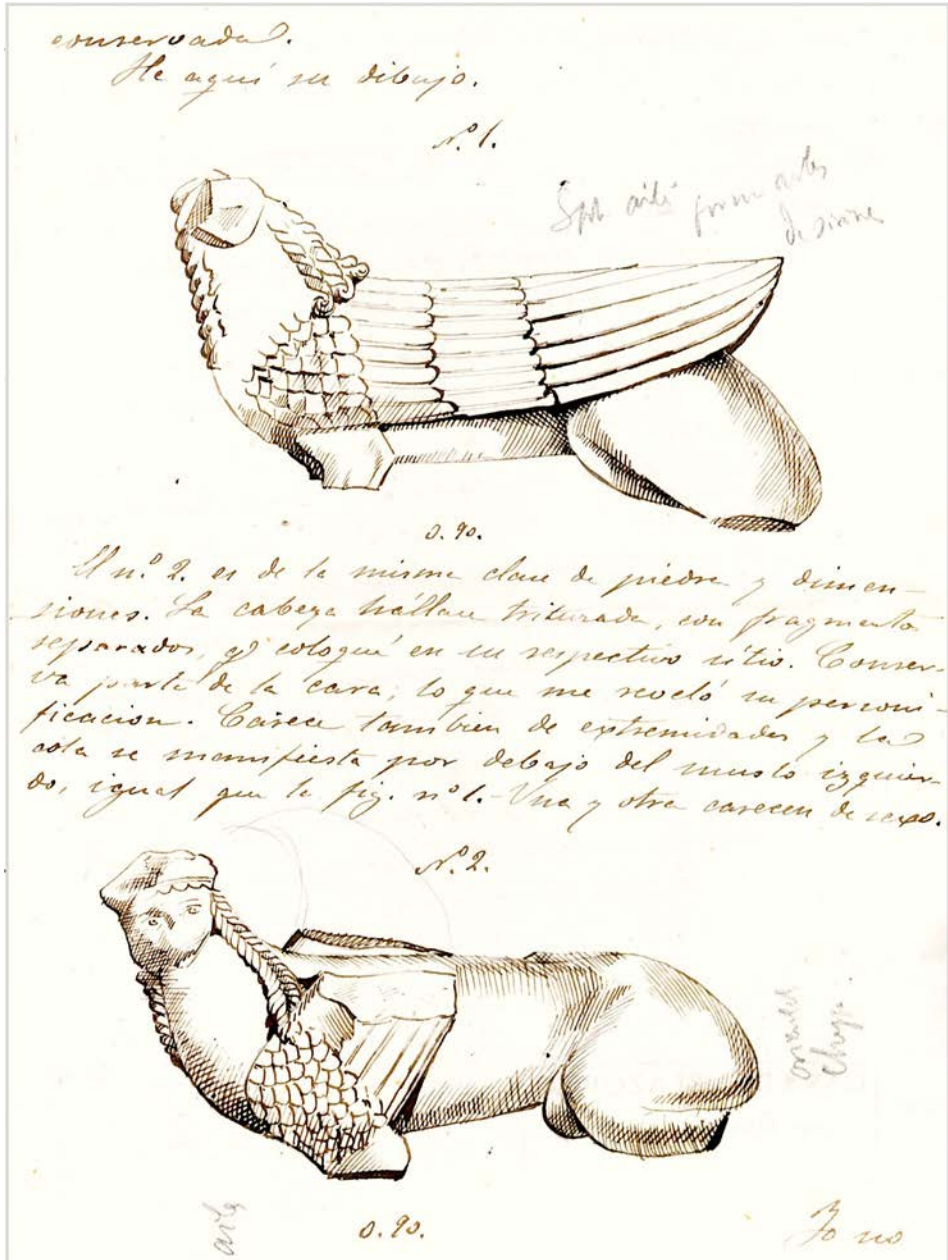 conservada.
He aquí su dibujo.
N.º 1.
0.90.
El n.º 2. es de la misma clase de piedra y dimen-
siones. La cabeza hállase triturada, con fragmentos
separados, q.e coloqué en su respectivo sitio. Conser-
va parte de la cara, lo que me reveló su personi-
ficacion. Carece tambien de extremidades y la
cola se manifiesta por debajo del muslo izquier-
do, igual que la fig. nº 1.- Una y otra carecen de sexo.
N.º 2.
0.90.
Yo no